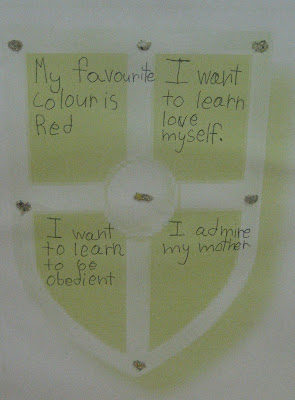 My favourite
colour is
Red
I want
to learn
love
myself.
I want
to learn
to be
obedient
I admire
my mother